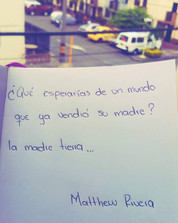 ¿Qué esperarías de un mundo
que ya vendió su madre?
la madre tierra...
Matthew Rivera